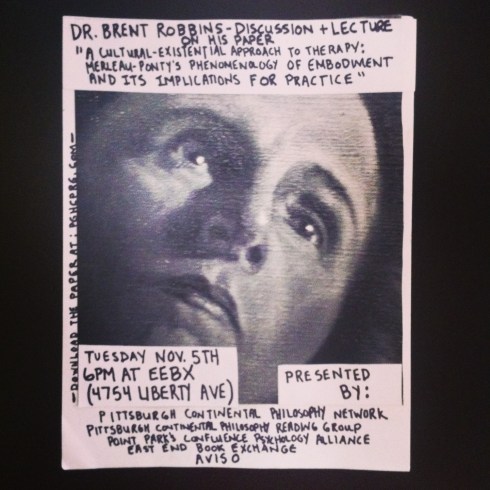 DR. BRENT ROBBINS - DISCUSSION + LECTURE
ON HIS PAPER
"A CULTURAL-EXISTENTIAL APPROACH TO THERAPY:
MERLEAU-PONTY'S PHENOMENOLOGY OF EMBODIMENT
AND ITS IMPLICATIONS FOR PRACTICE"
-DOWNLOAD THE PAPER AT: PGHCPRG.COM-
TUESDAY NOV. 5TH
6PM AT EEBX
(4754 LIBERTY AVE)
PRESENTED
BY:
PITTSBURGH CONTINENTAL PHILOSOPHY NETWORK
PITTSBURGH CONTINENTAL PHILOSOPHY READING GROUP
POINT PARK'S CONFLUENCE PSYCHOLOGY ALLIANCE
EAST END BOOK EXCHANGE
AVISO